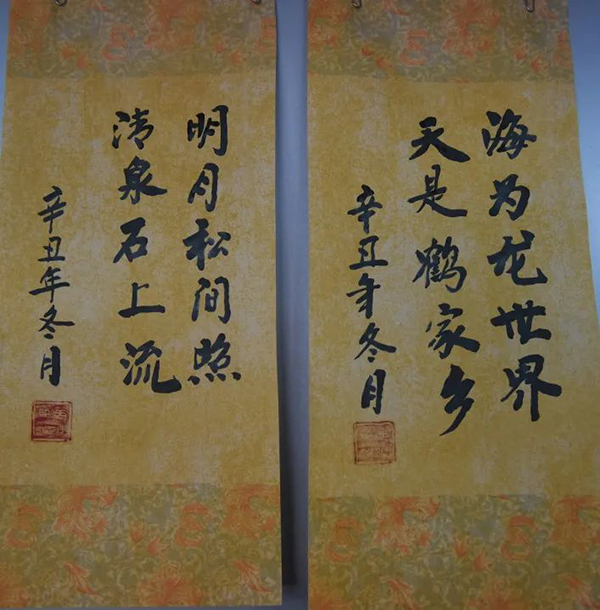 海为龙世界
天是鹤家乡
辛丑年冬月
明月松间照
清泉石上流
辛丑年冬月